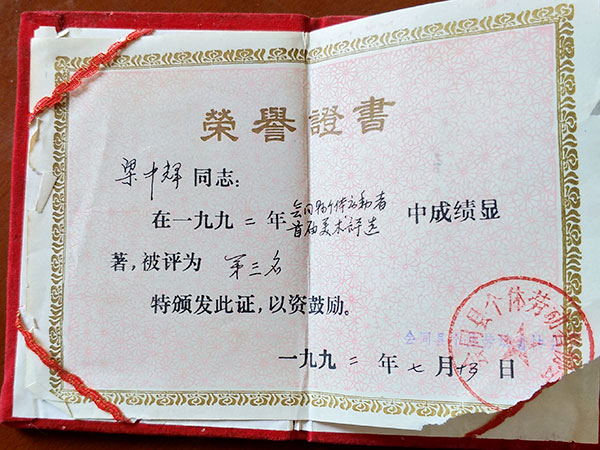 榮譽證書
梁中辉 同志:
在一九九二年 会同县个体劳动者首届美术评选 中成绩显
著,被评为 第三名
特颁发此证,以资鼓励。
一九九二年七月十3日
会同县个体劳动者